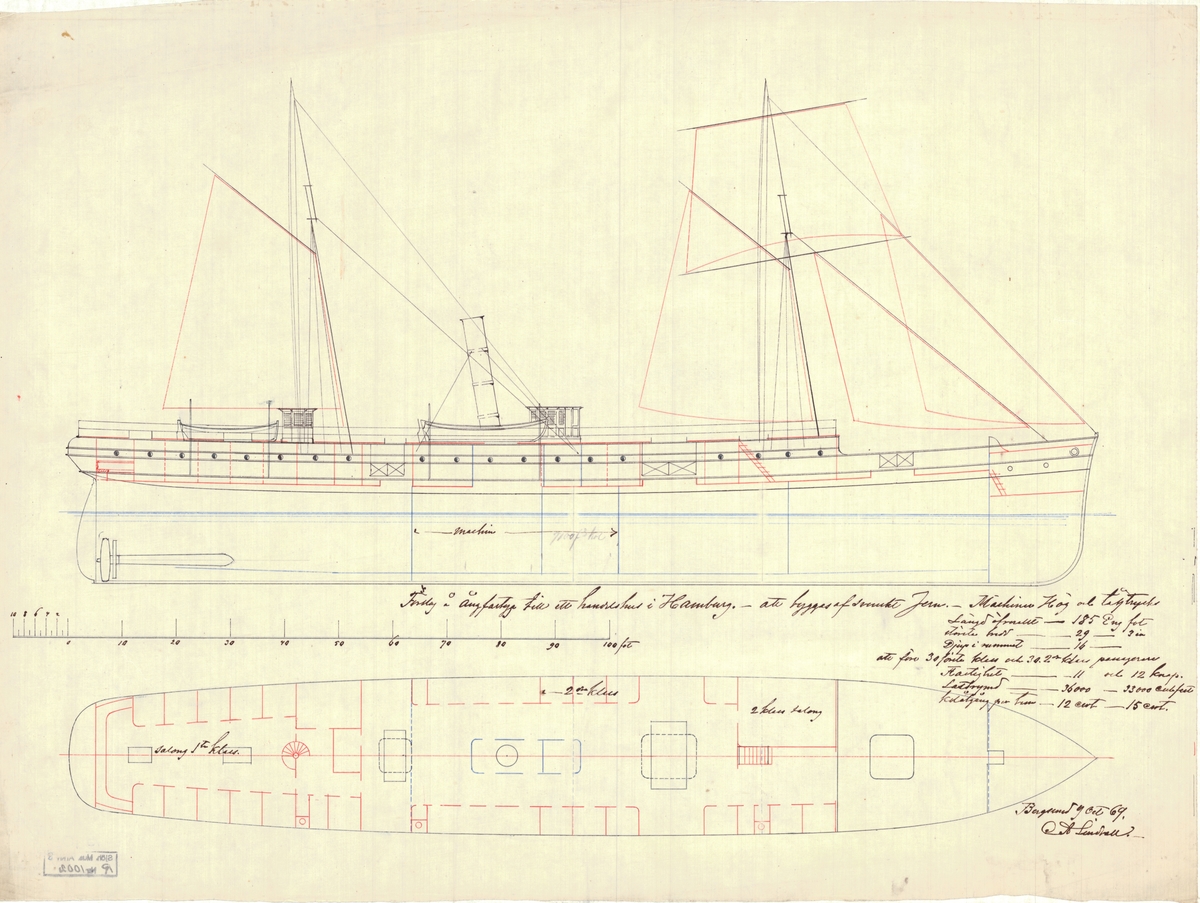 machin
Förslag å Ångfartyg till ett handelshus i Hamburg. — att byggas af svenskt Jern. — Machiner Hög och lågtrycks
Längd öfverallt — 185 Eng fot
största bredd — 29 — 3 in
Djup i rummet — 16 —
att föra 30 första klass och 30. 2dra klass passagerare
Hastighet — 11 och 12 knop.
Lastrymd — 36000 — 33000 cubfot
Kolåtgång per timme — 12 cent. — 15 cent.
10 8 6 4 2
0 10 20 30 40 50 60 70 80 90 100 fot
2dra klass
2 klass salong
salong 1sta klass.
Bergsund 9 Oct 69.
A Lindvall
No 1002